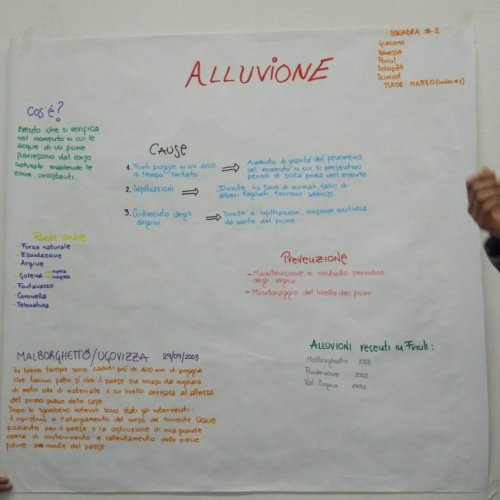 SQUADRA # 2
Giacomo
Vanessa
TUTOR: MATTEO
ALLUVIONE
Cos'è?
Evento che si verifica
nel momento in cui le
acque di un fiume
fuoriescono dal corso
naturale invadendo le
zone circostanti.
CAUSE
1. Forti piogge in un arco
di tempo limitato
Aumento di gravità del fenomeno
nel momento in cui si presentano
periodi di prima dell'evento
2. Infiltrazioni
Dovute tane di animali, radici di
alberi tagliati, terreno sabbioso
3. Cedimento degli
argini
Dovute a infiltrazioni, erosione continua
da parte del fiume
Parole chiave
- Forza naturale
- Esondazione
- Argine
- Golena
- Fontanazzo
- Coronella
- Telonatura
PREVENZIONE
- Manutenzione e controllo periodico
degli argini
- Monitoraggio del livello dei fiumi
ALLUVIONI recenti in Friuli:
Malborghetto 2003
Pordenone 2002
Val 1996
MALBORGHETTO/UGOVIZZA 29/09/2003
In breve tempo sono caduti più di 400 mm di pioggia
che hanno fatto sì che il paese sia invaso da migliaia
di metri cubi di materiale il cui livello arrivava all'altezza
del primo piano delle case.
Dopo lo sgombero notevoli sono stati gli interventi:
il ripristino e l'allargamento del corso del torrente Uque
passante per il paese e la costruzione di una grande
opera di contenimento e rallentamento delle
future a monte del paese